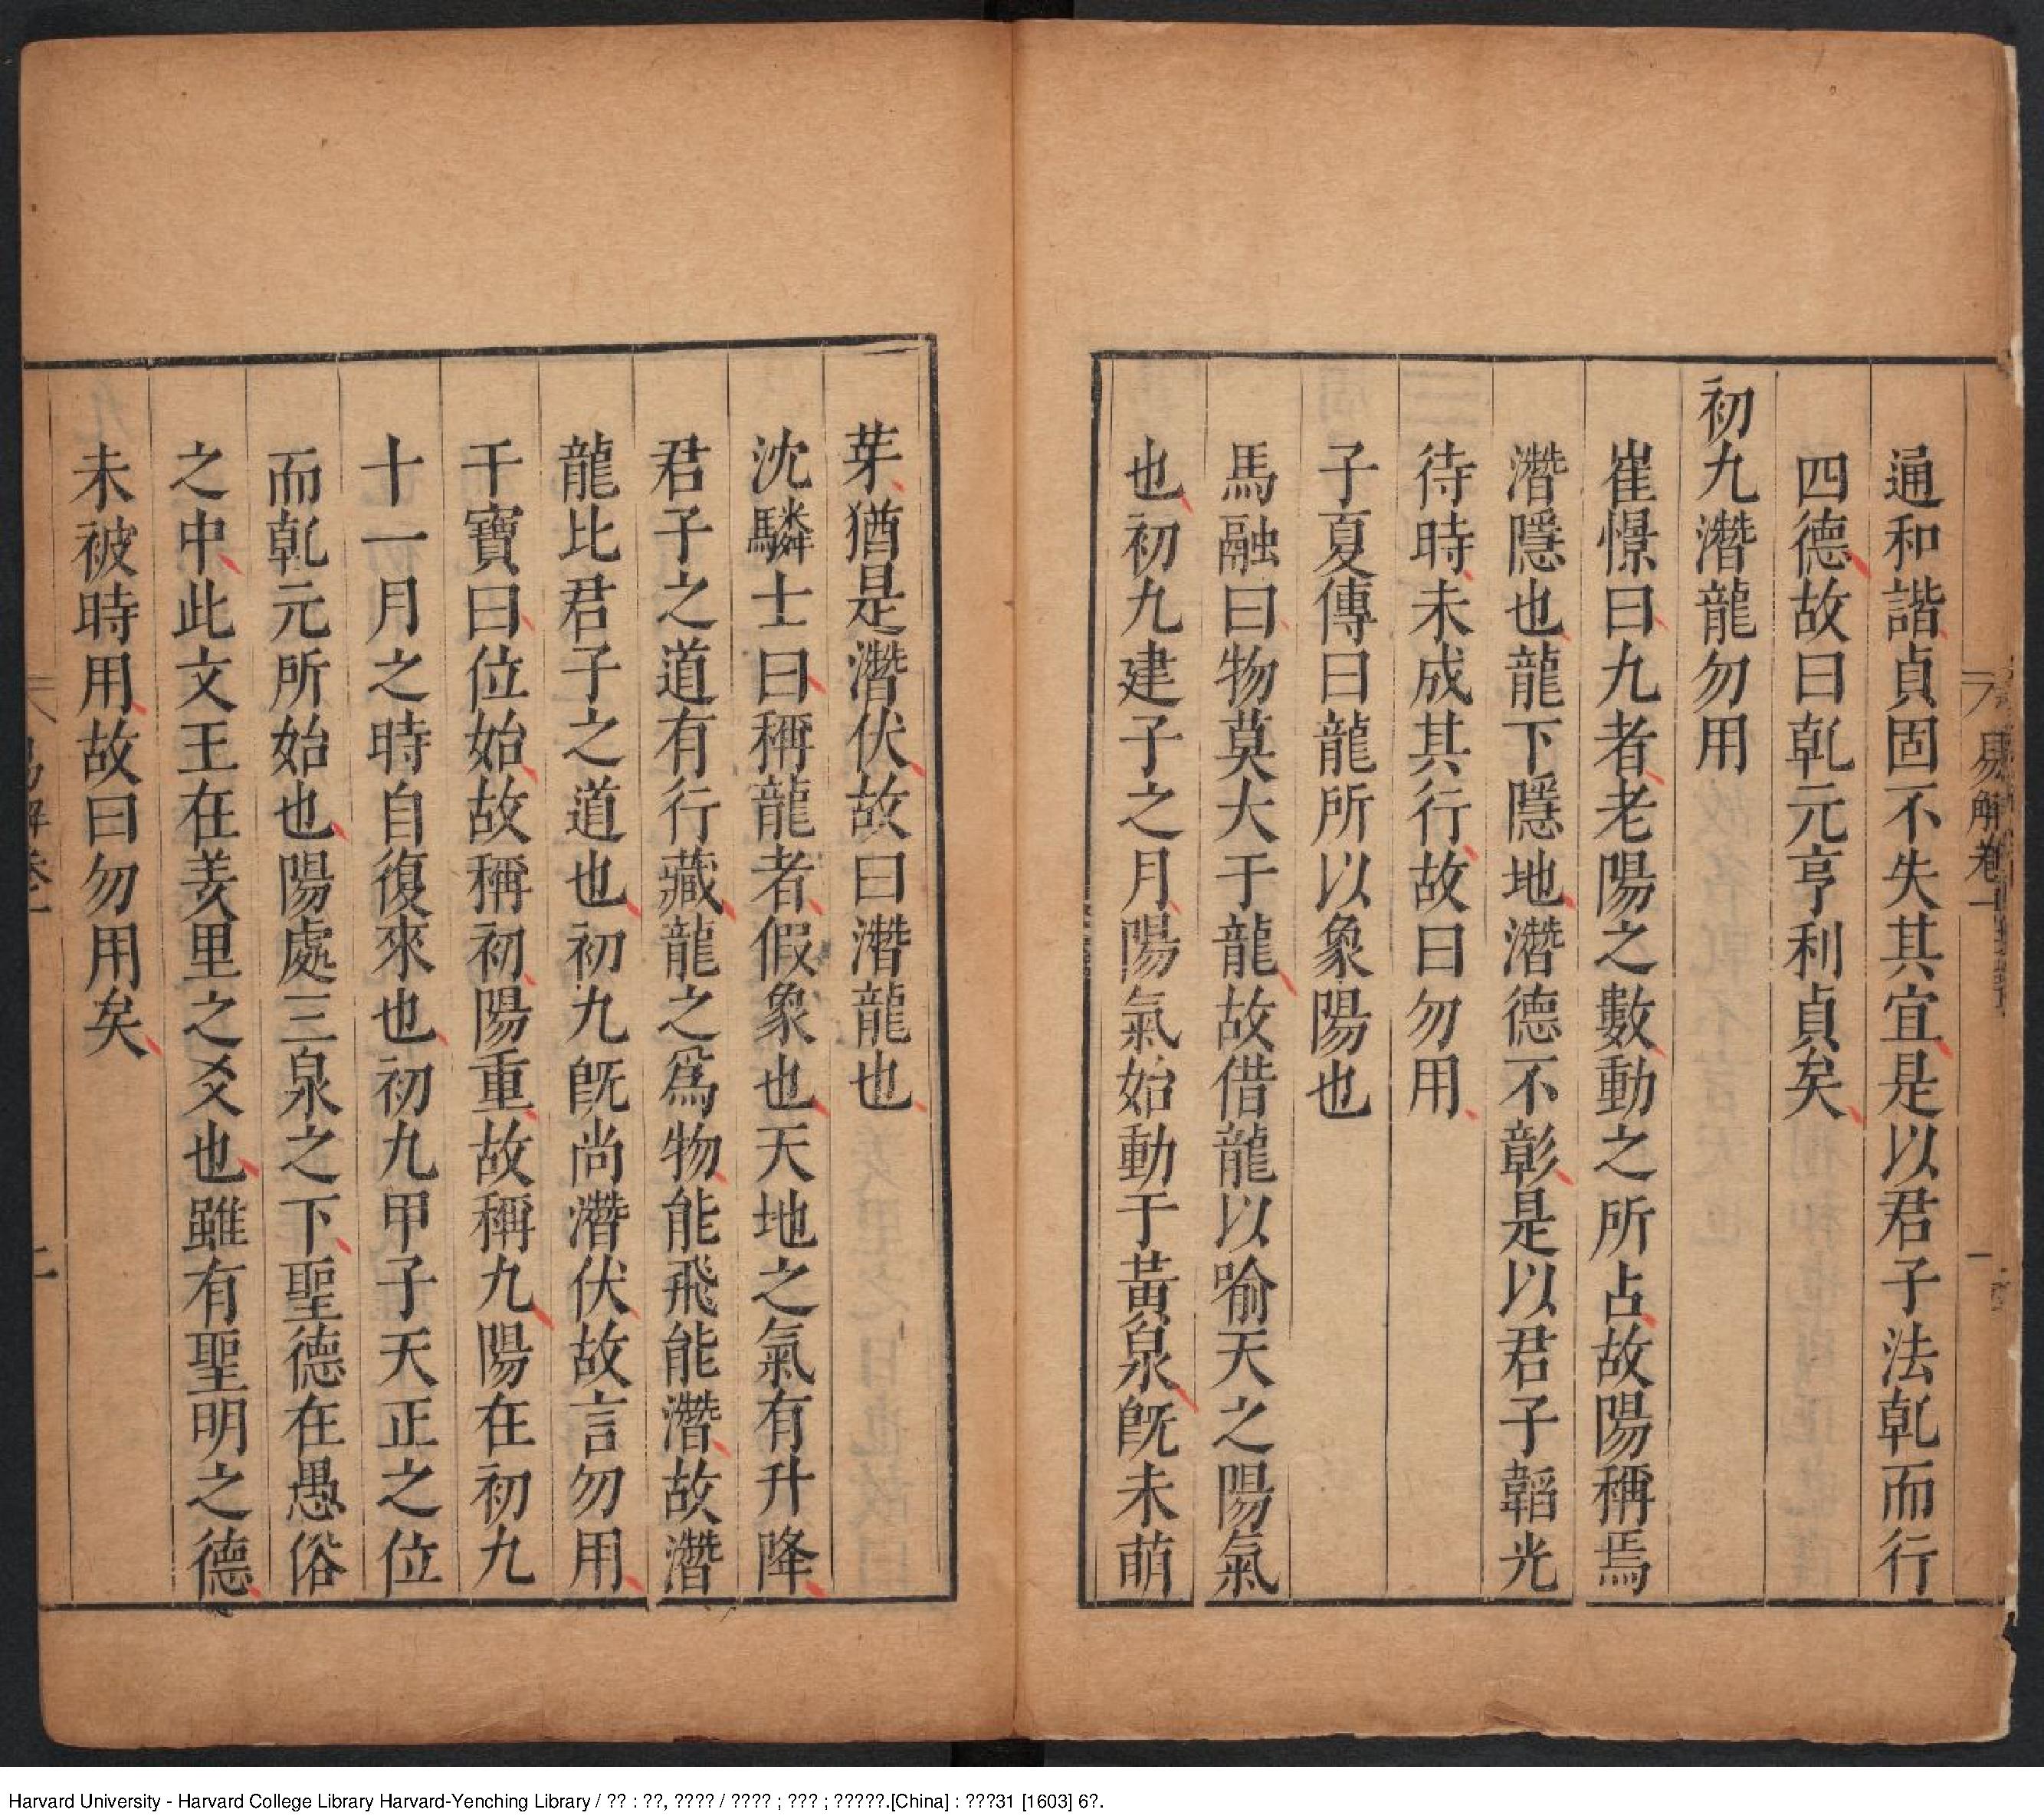 易解卷一
一
通和諧貞固不失其宜是以君子法乹而行
四德故曰乹元亨利貞矣
初九潛龍勿用
崔憬曰九者老陽之數動之所占故陽稱焉
潛隱也龍下隱地潛德不彰是以君子韜光
待時未成其行故曰勿用
子夏傳曰龍所以象陽也
馬融曰物莫大于龍故借龍以喻天之陽氣
也初九建子之月陽氣始動于黃泉旣未萌
芽猶是潛伏故曰潛龍也
沈驎士曰稱龍者假象也天地之氣有升降
君子之道有行藏龍之爲物能飛能潛故潛
龍比君子之道也初九旣尚潛伏故言勿用
干寶曰位始故稱初陽重故稱九陽在初九
十一月之時自復來也初九甲子天正之位
而乹元所始也陽處三泉之下聖德在愚俗
之中此文王在羑里之爻也雖有聖明之德
未被時用故曰勿用矣
Harvard University - Harvard College Library Harvard-Yenching Library / ?? : ??, ???? / ???? ; ??? ; ?????.[China] : ???31 [1603] 6?.